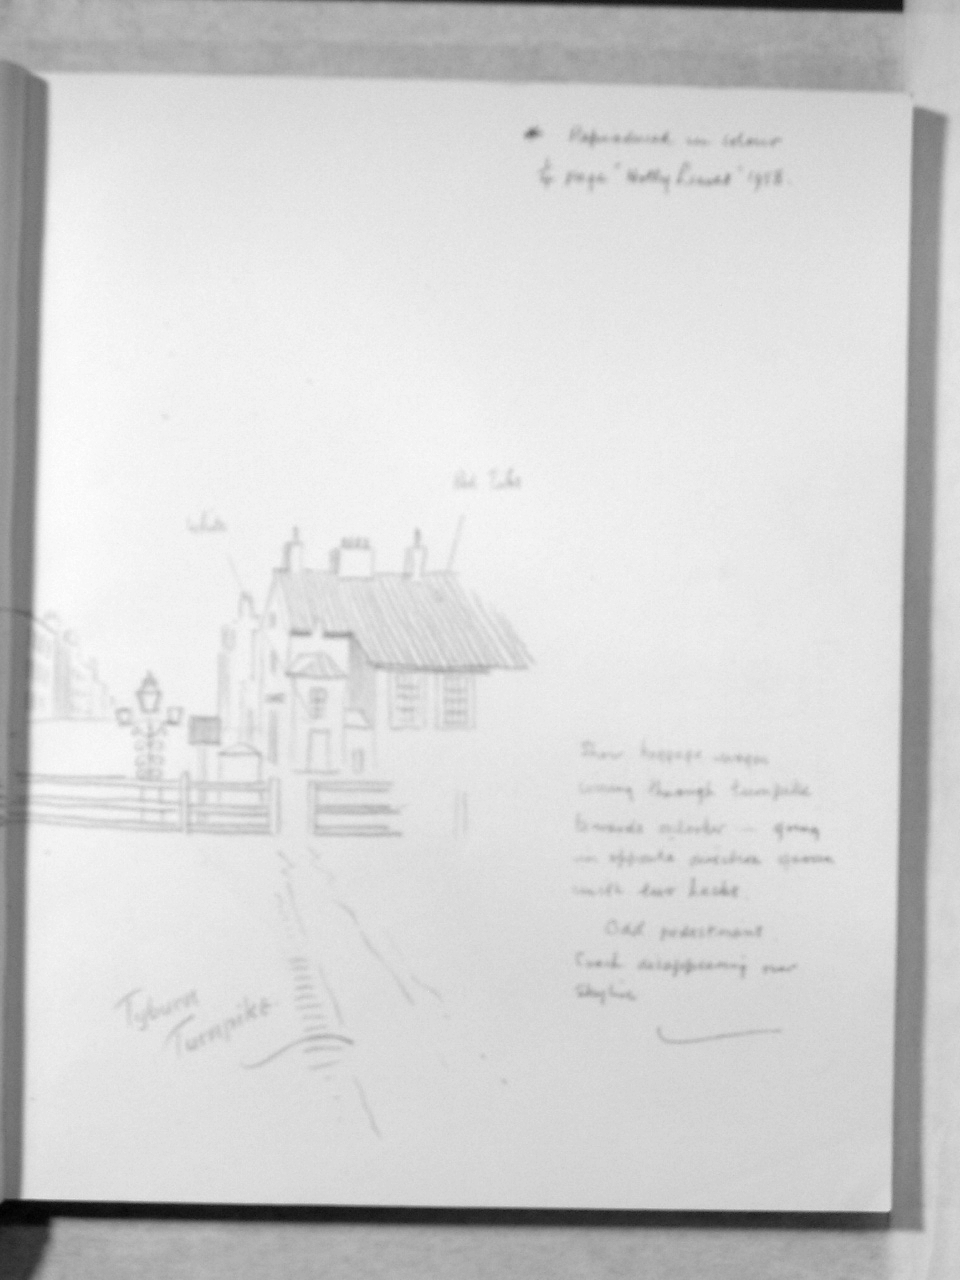 * Reproduced in colour
½ page "Holly Leaves" 1958.
Red Tiles
White
Show baggage wagon
coming through turnpike
towards onlooker — going
in opposite direction
with two
Odd pedestrians
Coach disappearing over
Skyline
Tyburn
Turnpike